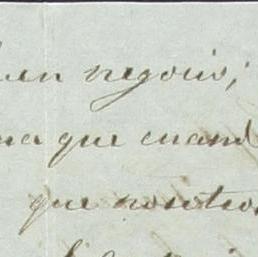 en negocio;
na que cuand
que nosotro